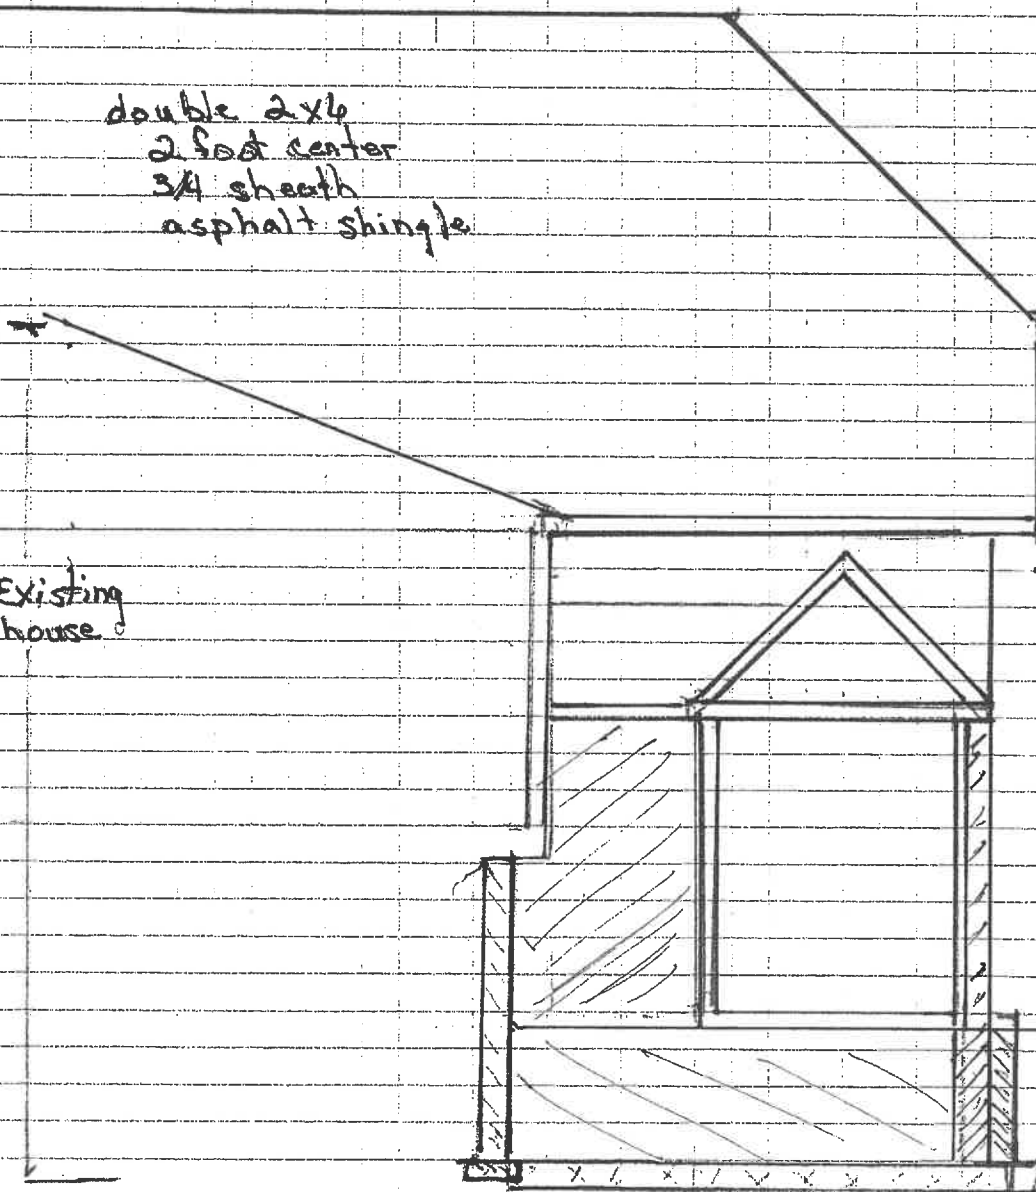 double 2x6
2 foot center
3/4 sheath
asphalt shingle
Existing
house